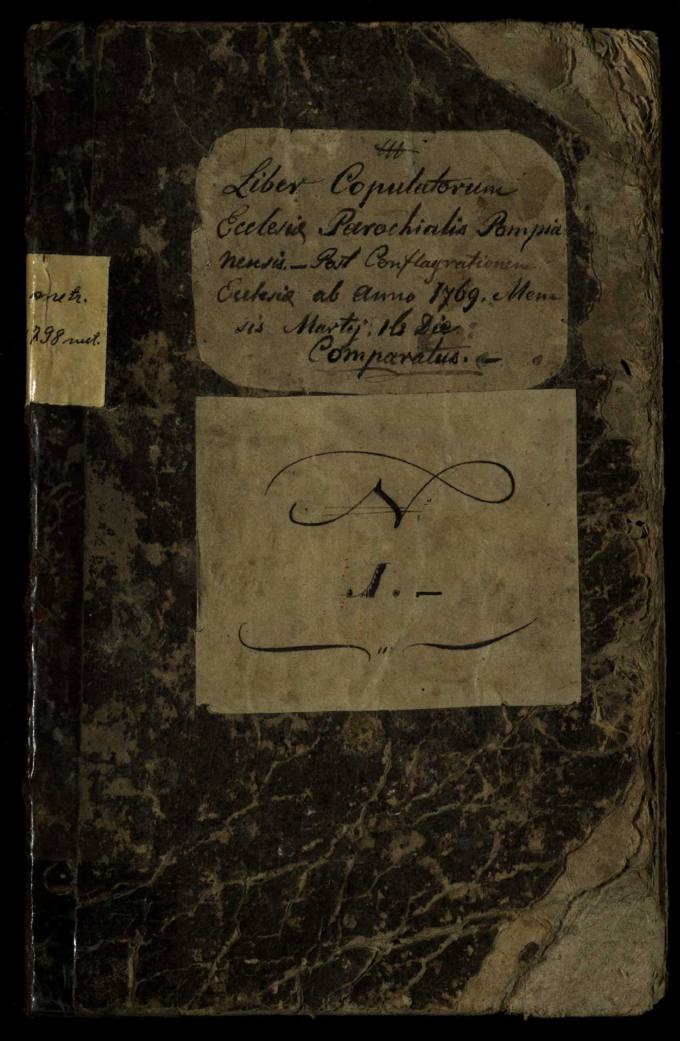 Liber Copulatorum
Ecclesiæ Parochialis Pompia
nensis. – Post Conflagrationem
Ecclesiæ ab Anno 1769. Men
sis Martij. 16 Die
Comparatus. –
metr.
1798 met.
N
1. –